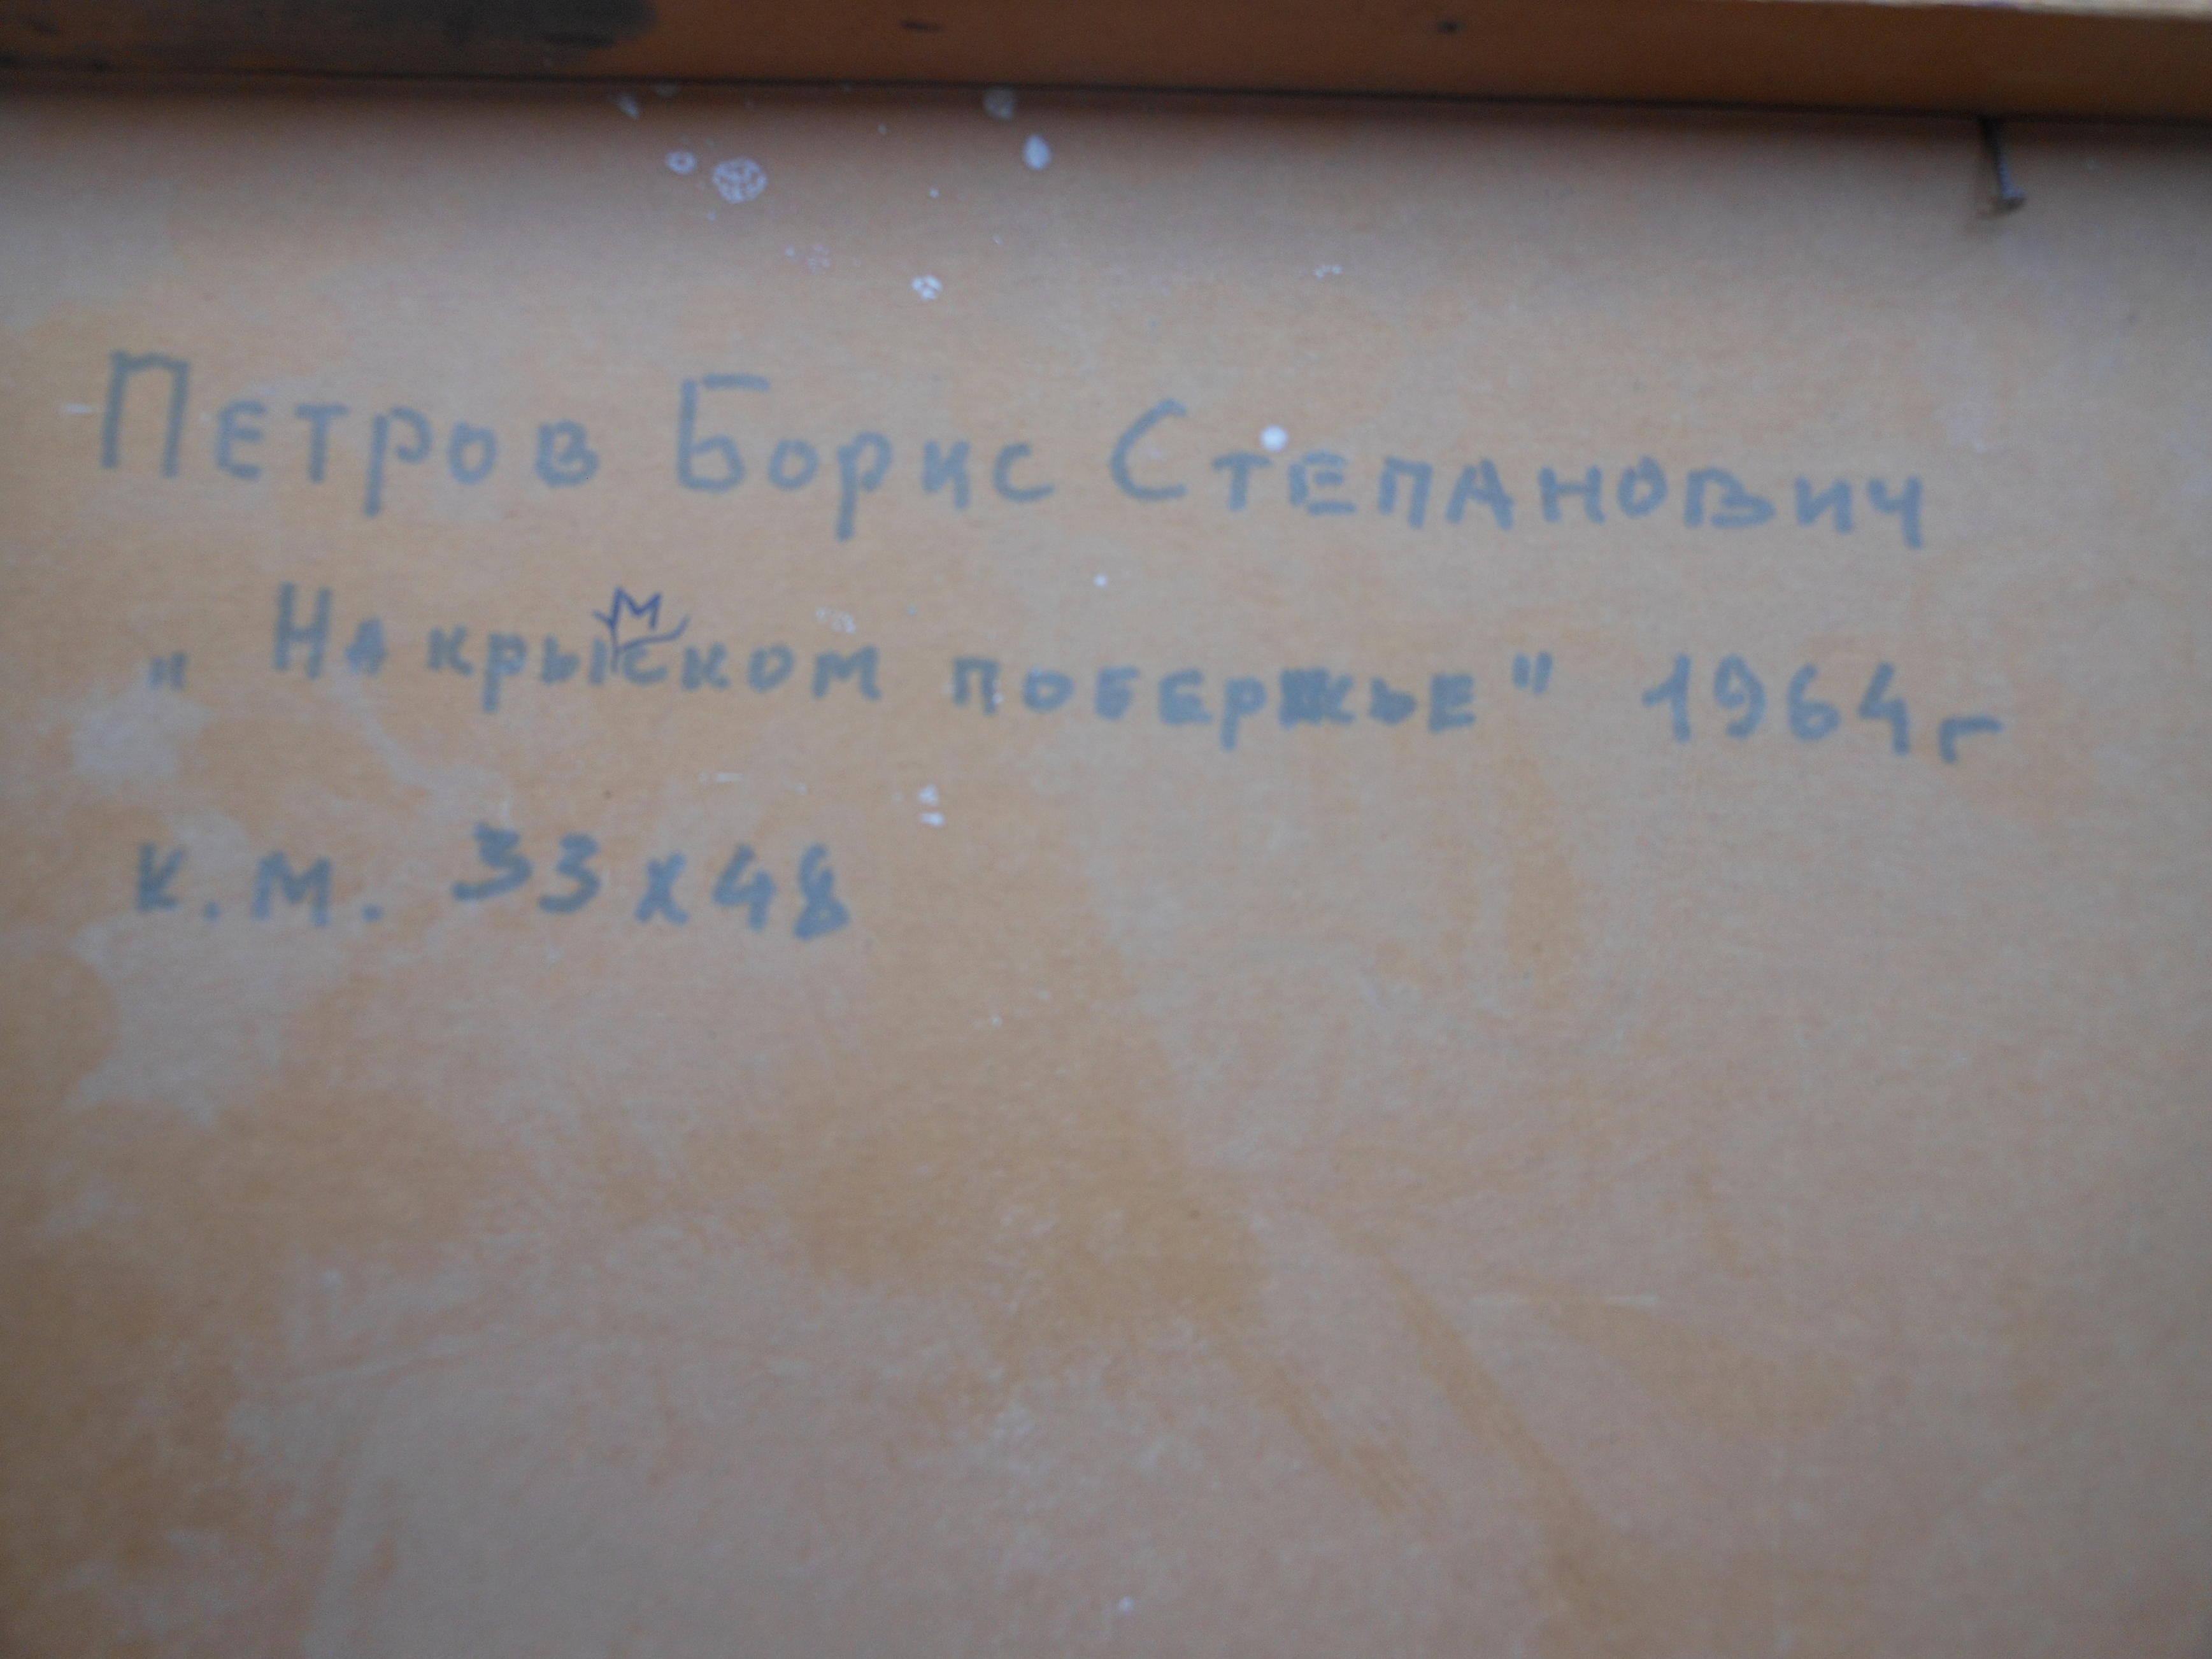 Петров Борис Степанович
„ На крымском побержье" 1964 г
к. м. 33 х 48